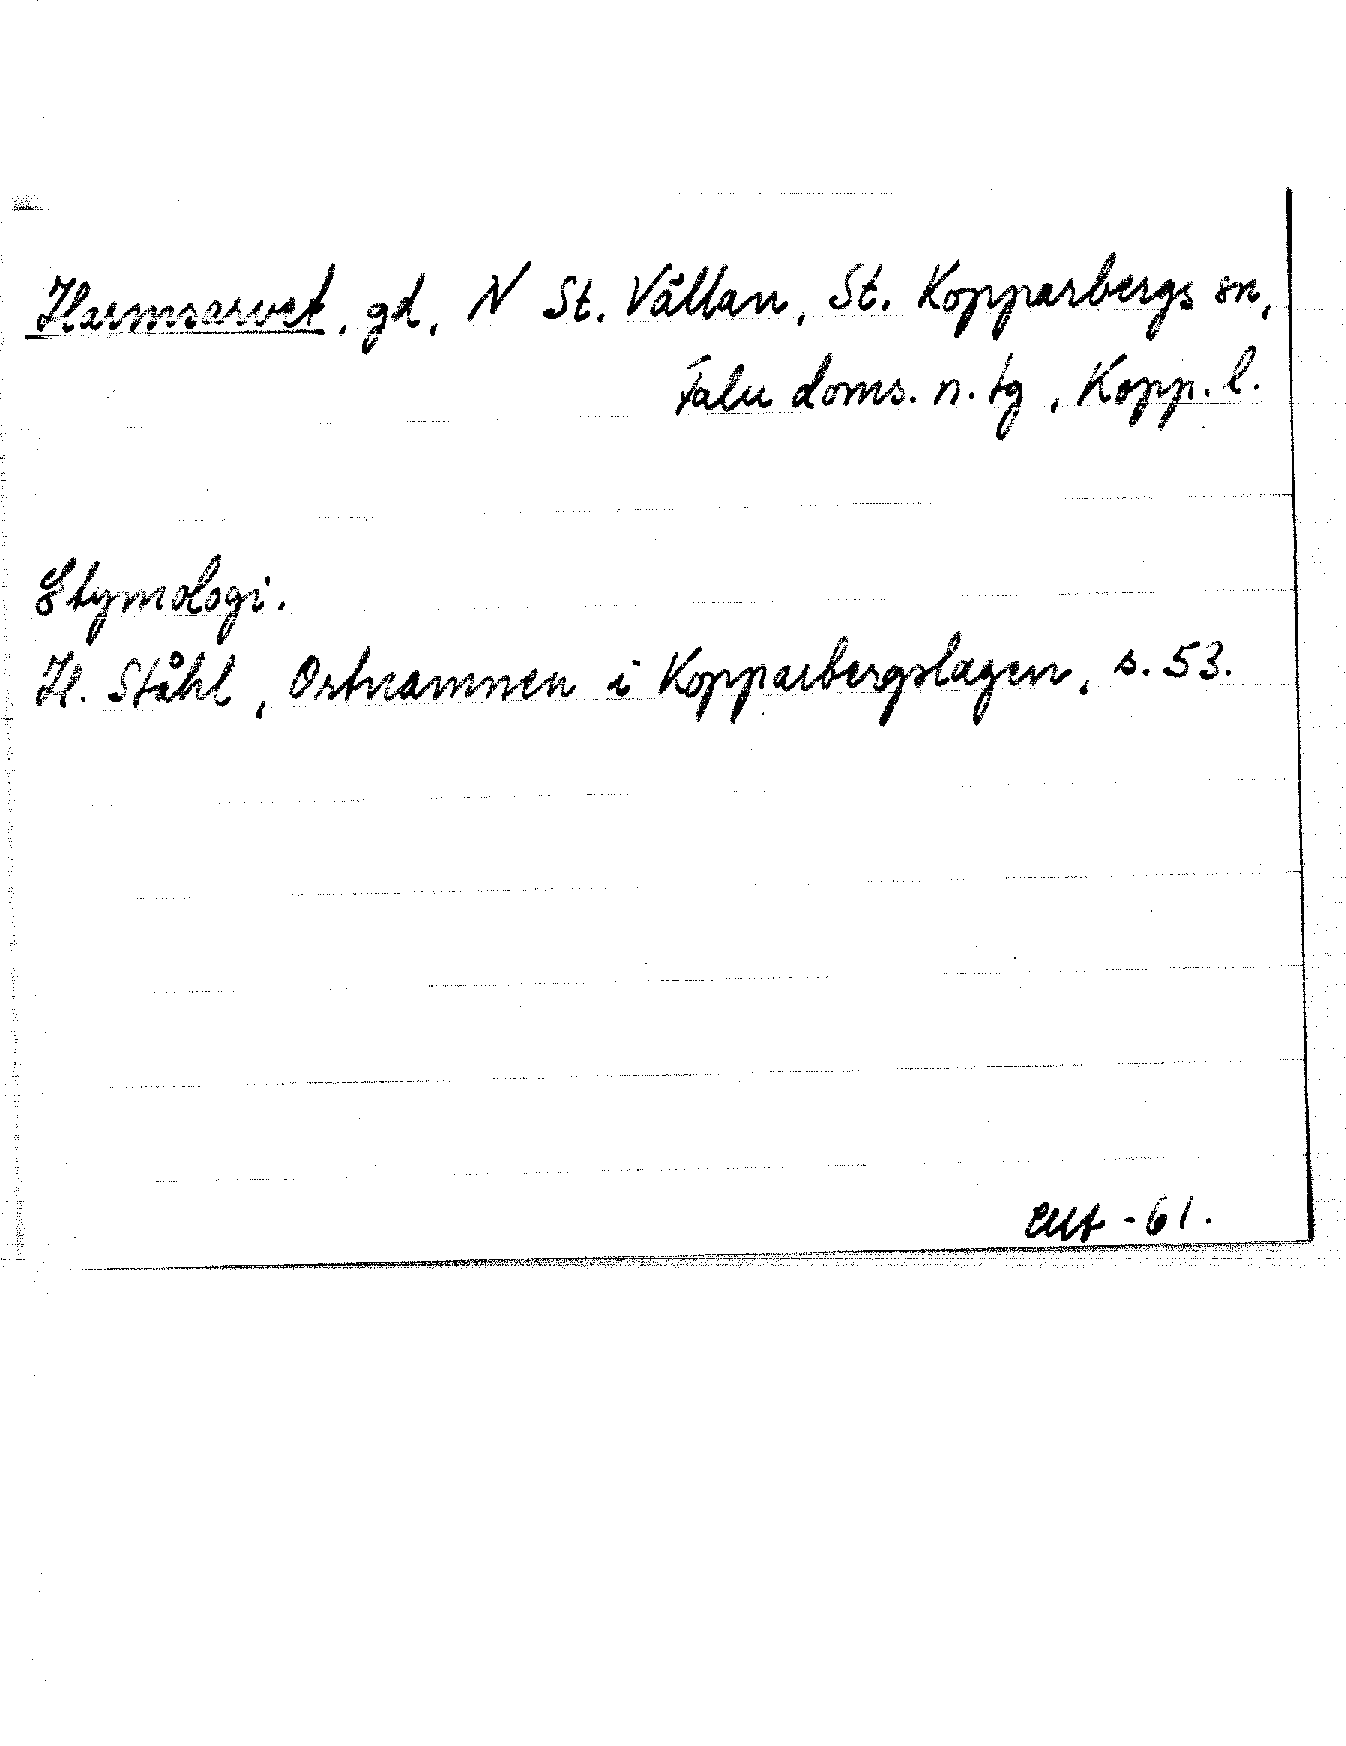 Harmsarvet, gd, N St. Vällan, St. Kopparbergs sn,
Falu doms. n. tg, Kopp. l.
Etymologi.
H. Ståhl, Ortnamnen i Kopparbergslagen, s. 53.
-61.